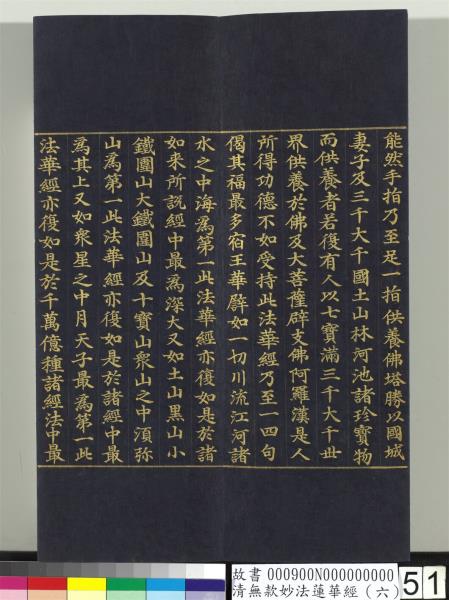 能然手指乃至足一指供養佛塔勝以國城
妻子及三千大千國土山林河池諸珍寶物
而供養者若復有人以七寶滿三千大千世
界供養於佛及大菩薩辟支佛阿羅漢是人
所得功德不如受持此法華經乃至一四句
偈其福最多宿王華譬如一切川流江河諸
水之中海為第一此法華經亦復如是於諸
如來所說經中最為深大又如土山黑山小
鐵圍山大鐵圍山及十寶山眾山之中須彌
山為第一此法華經亦復如是於諸經中最
為其上又如眾星之中月天子最為第一此
法華經亦復如是於千萬億種諸經法中最
故書 000900N000000000
清無款妙法蓮華經（六）
51